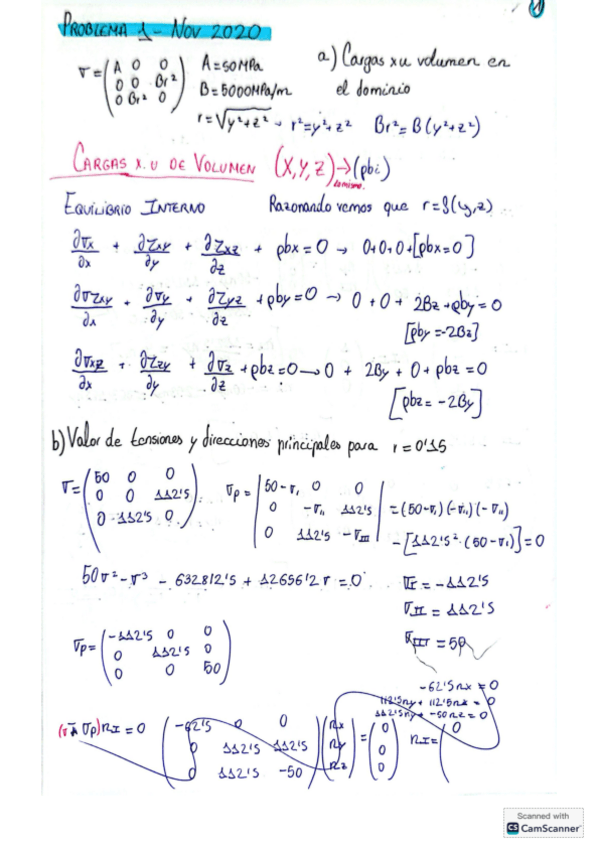 PROBLEMA 1 - NOV 2020
σ = (A 0 0 / 0 0 Br² / 0 Br² 0) A = 50MPa a) Cargas x u volumen en
B = 5000MPa/m el dominio
r = √y²+z² → r² = y²+z² Br² = B(y²+z²)
CARGAS X.U DE VOLUMEN (X,Y,Z) → (ρbi)
lo mismo.
EQUILIBRIO INTERNO Razonando vemos que r = f(y,z)
∂σx/∂x + ∂τxy/∂y + ∂τxz/∂z + ρbx = 0 → 0+0+0+[ρbx=0]
∂τxy/∂x + ∂σy/∂y + ∂τyz/∂z + ρby = 0 → 0 + 0 + 2Bz + ρby = 0
[ρby = -2Bz]
∂τxz/∂x + ∂τzy/∂y + ∂σz/∂z + ρbz = 0 → 0 + 2By + 0 + ρbz = 0
[ρbz = -2By]
b) Valor de tensiones y direcciones principales para r = 0'15
σ = (50 0 0 / 0 0 112'5 / 0 112'5 0) σp = |50-σI 0 0 / 0 -σII 112'5 / 0 112'5 -σIII| = (50-σI)(-σII)(-σIII)
- [112'5² · (50-σI)] = 0
50σ² - σ³ - 632812'5 + 12656'2 σ = 0 σI = -112'5
σII = 112'5
σIII = 50
σp = (-112'5 0 0 / 0 112'5 0 / 0 0 50)
-62'5nx = 0
112'5ny + 112'5nz = 0
112'5ny + -50nz = 0
σp) nI = 0 (-62'5 0 0 / 0 112'5 112'5 / 0 112'5 -50) (nx / ny / nz) = (0 / 0 / 0) nI = (0
Scanned with
CS CamScanner